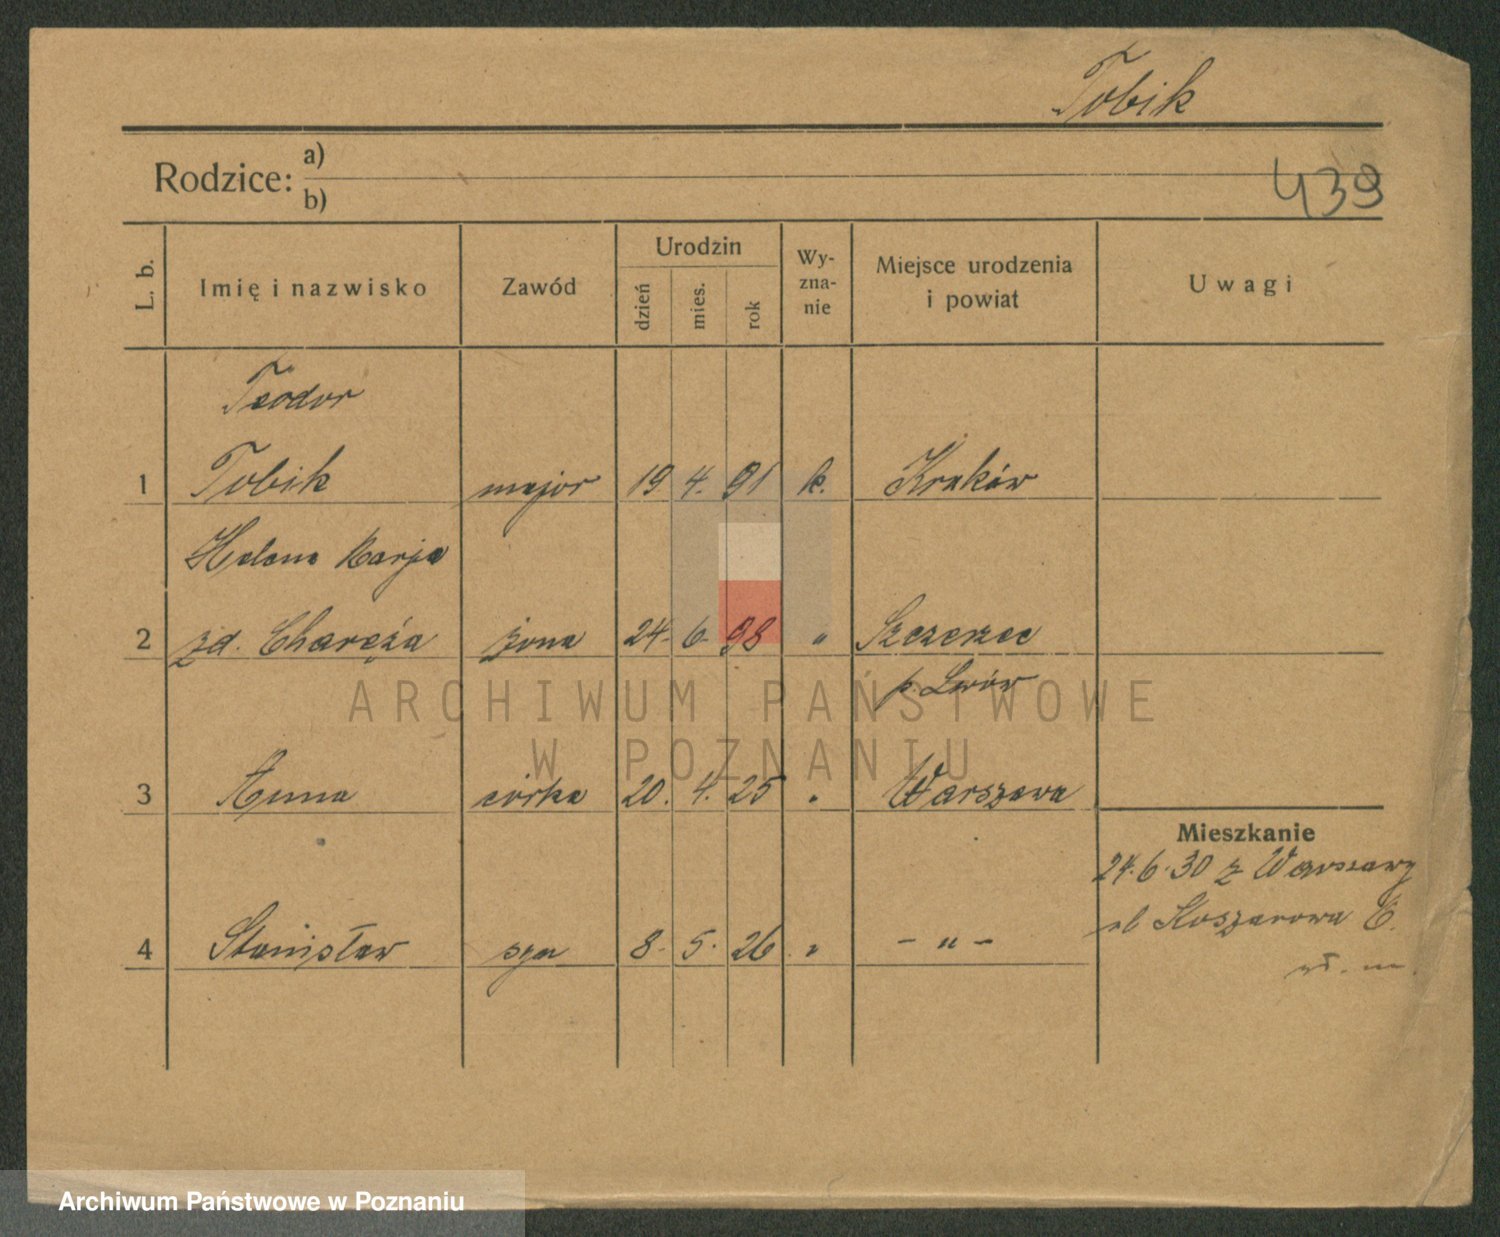 Tobik
Rodzice: a)
b)
439
L. b. Imię i nazwisko Zawód Urodzin dzień mies. rok Wy-zna-nie Miejsce urodzenia i powiat Uwagi
Teodor
1 Tobik major 19 4. 91 k. Kraków
Helena Marja
2 zd. Charęża żona 24. 6. 98 " Szczerzec
p. Lwów
3 Anna córka 20. 4. 25 " Warszawa
Mieszkanie
24.6.30 z Warszawy
ul Koszarowa
4 Stanisław syn 8. 5. 26 " - " -
ARCHIWUM PAŃSTWOWE
W POZNANIU
Archiwum Państwowe w Poznaniu